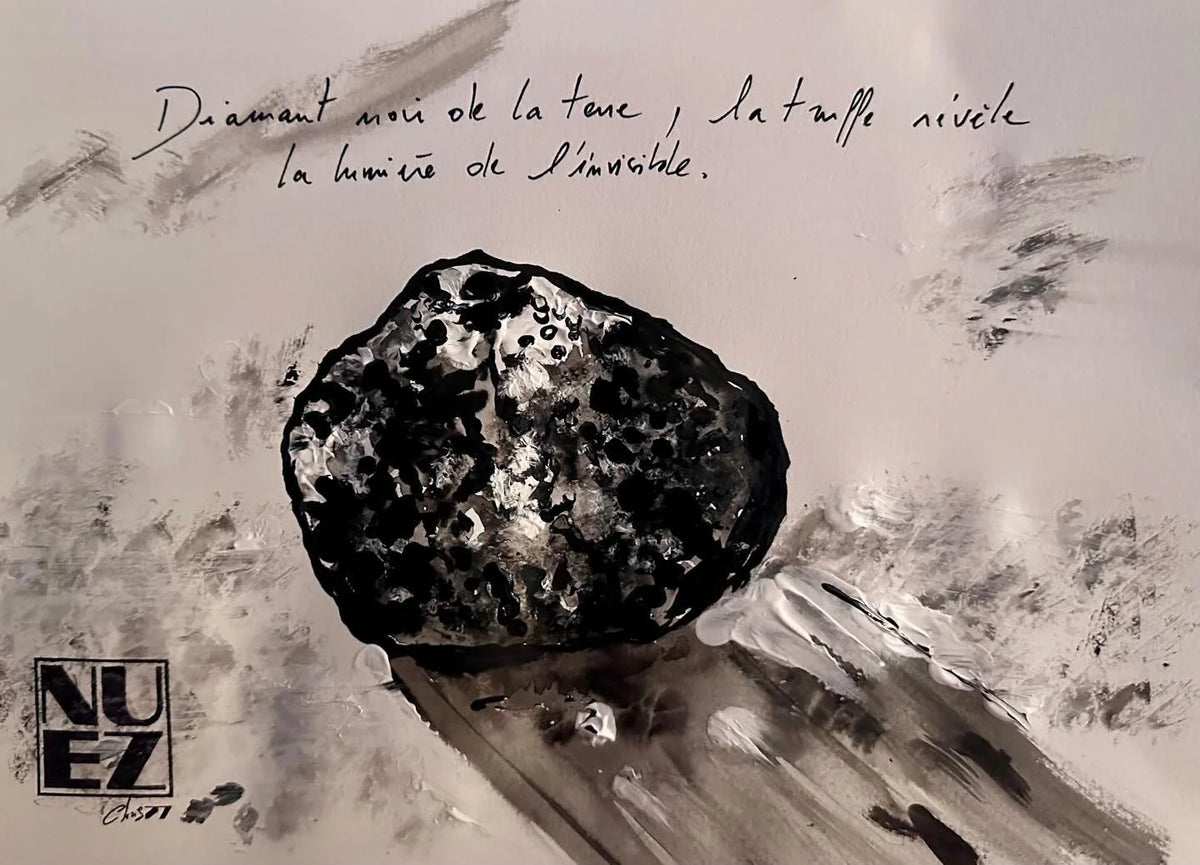 Diamant noir de la terre, la truffe révèle
la lumière de l'invisible.
NU
EZ